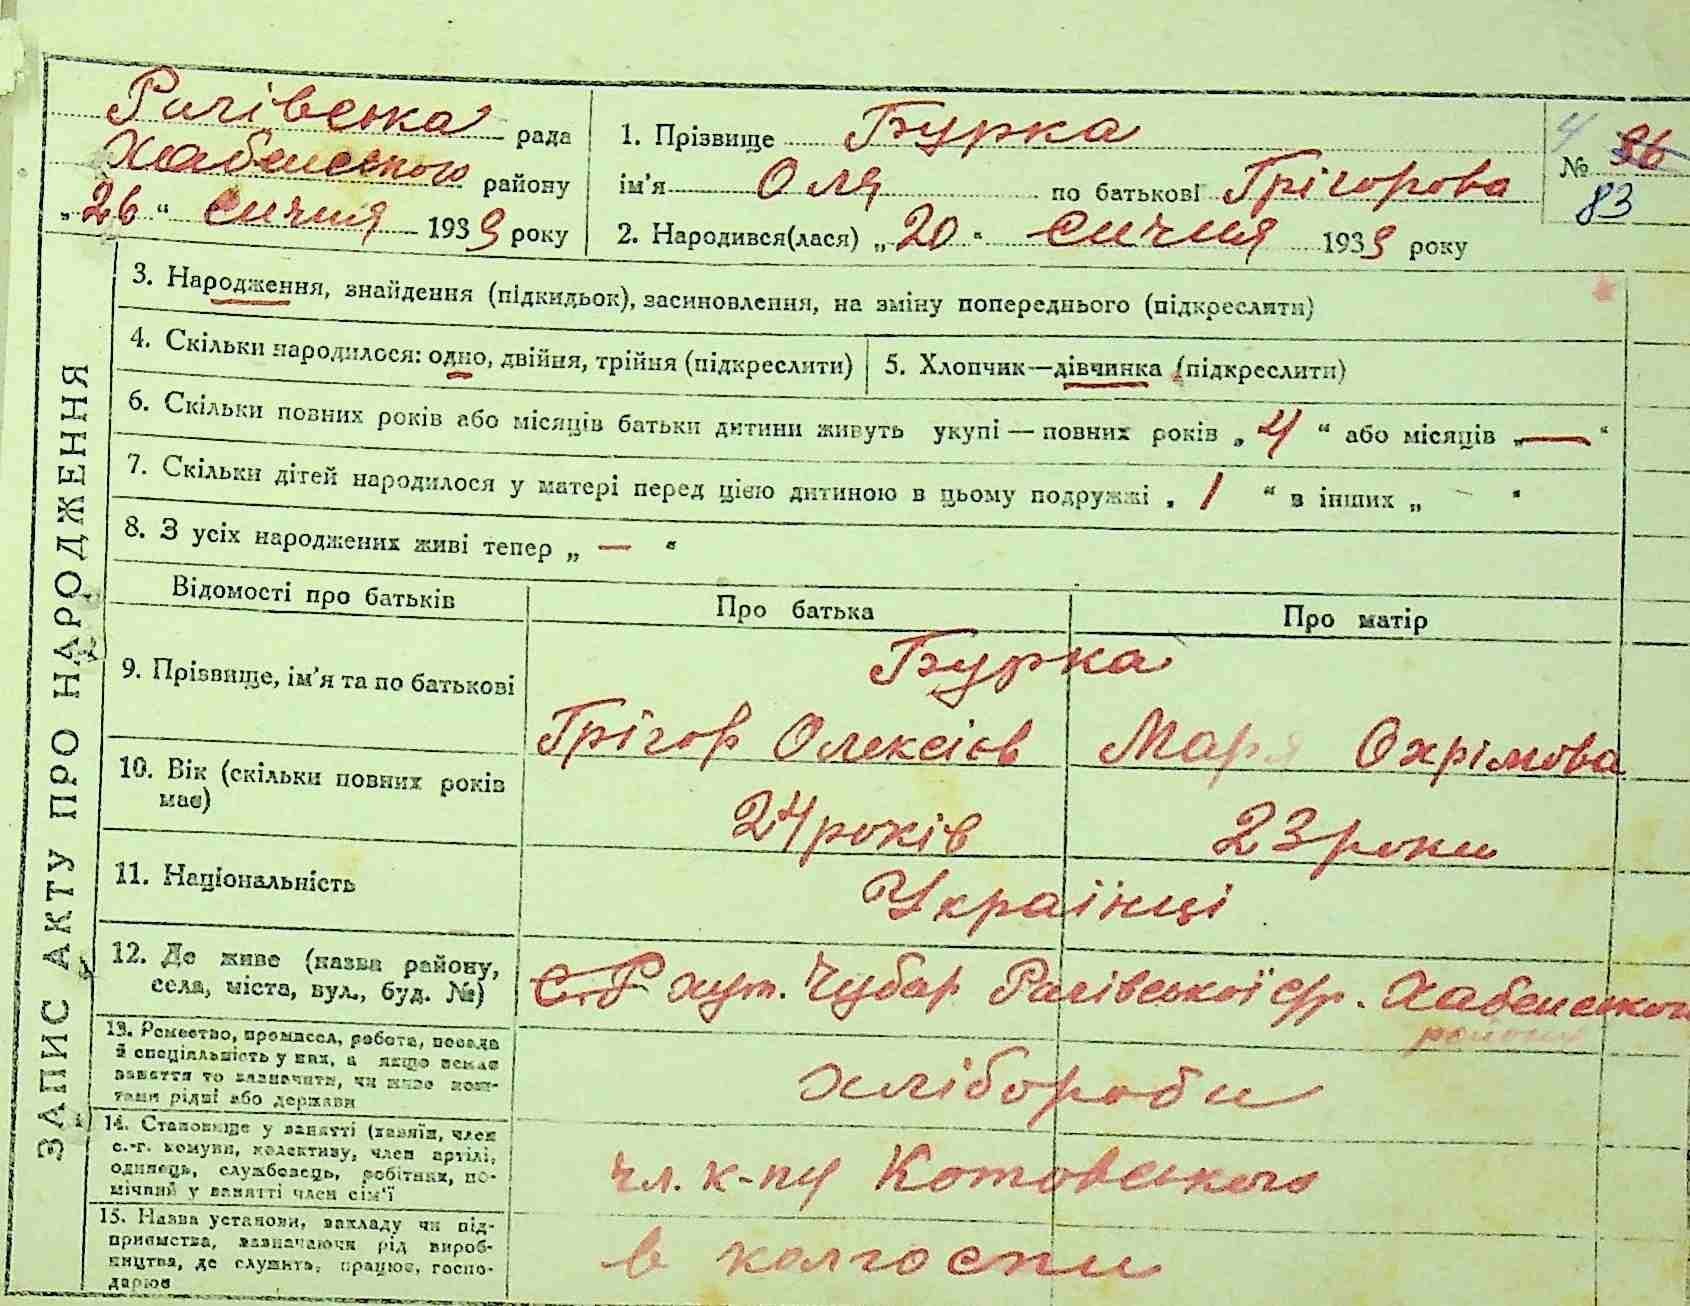 Рагівська рада
Хабенського району
„26“ січня 1939 року
1. Прізвище Бурка
ім'я Оля по батькові Грігорова
2. Народився(лася) „20“ січня 1939 року
4 № 36
83
ЗАПИС АКТУ ПРО НАРОДЖЕННЯ
3. Народження, знайдення (підкидьок), засиновлення, на зміну попереднього (підкреслити)
4. Скільки народилося: одно, двійня, трійня (підкреслити)
5. Хлопчик—дівчинка (підкреслити)
6. Скільки повних років або місяців батьки дитини живуть укупі — повних років „4“ або місяців „—“
7. Скільки дітей народилося у матері перед цією дитиною в цьому подружжі „1“ в інших „ “
8. З усіх народжених живі тепер „—“
Відомості про батьків Про батька Про матір
9. Прізвище, ім'я та по батькові
Бурка
Грігор Олексіов Маря Охрімова
10. Вік (скільки повних років
має)
24 років 23 роки
11. Національність Українці
12. Де живе (назва району,
села, міста, вул., буд. №)
хут. Чубар Рагівської с/р. Хабенського
району
13. Ремество, промисел, робота, посада
й спеціяльність у них, а якщо немає
заняття то зазначити, чи живе кош-
тами рідні або держави
хлібороби
14. Становище у занятті (хазяїн, член
с.-г. комуни, колективу, член артілі,
одинець, службовець, робітник, по-
мічний у занятті член сім'ї
чл. к-пу Котовського
15. Назва установи, закладу чи під-
приємства, зазначаючи рід вироб-
ництва, де служить, працює, госпо-
дарює
в колгоспи